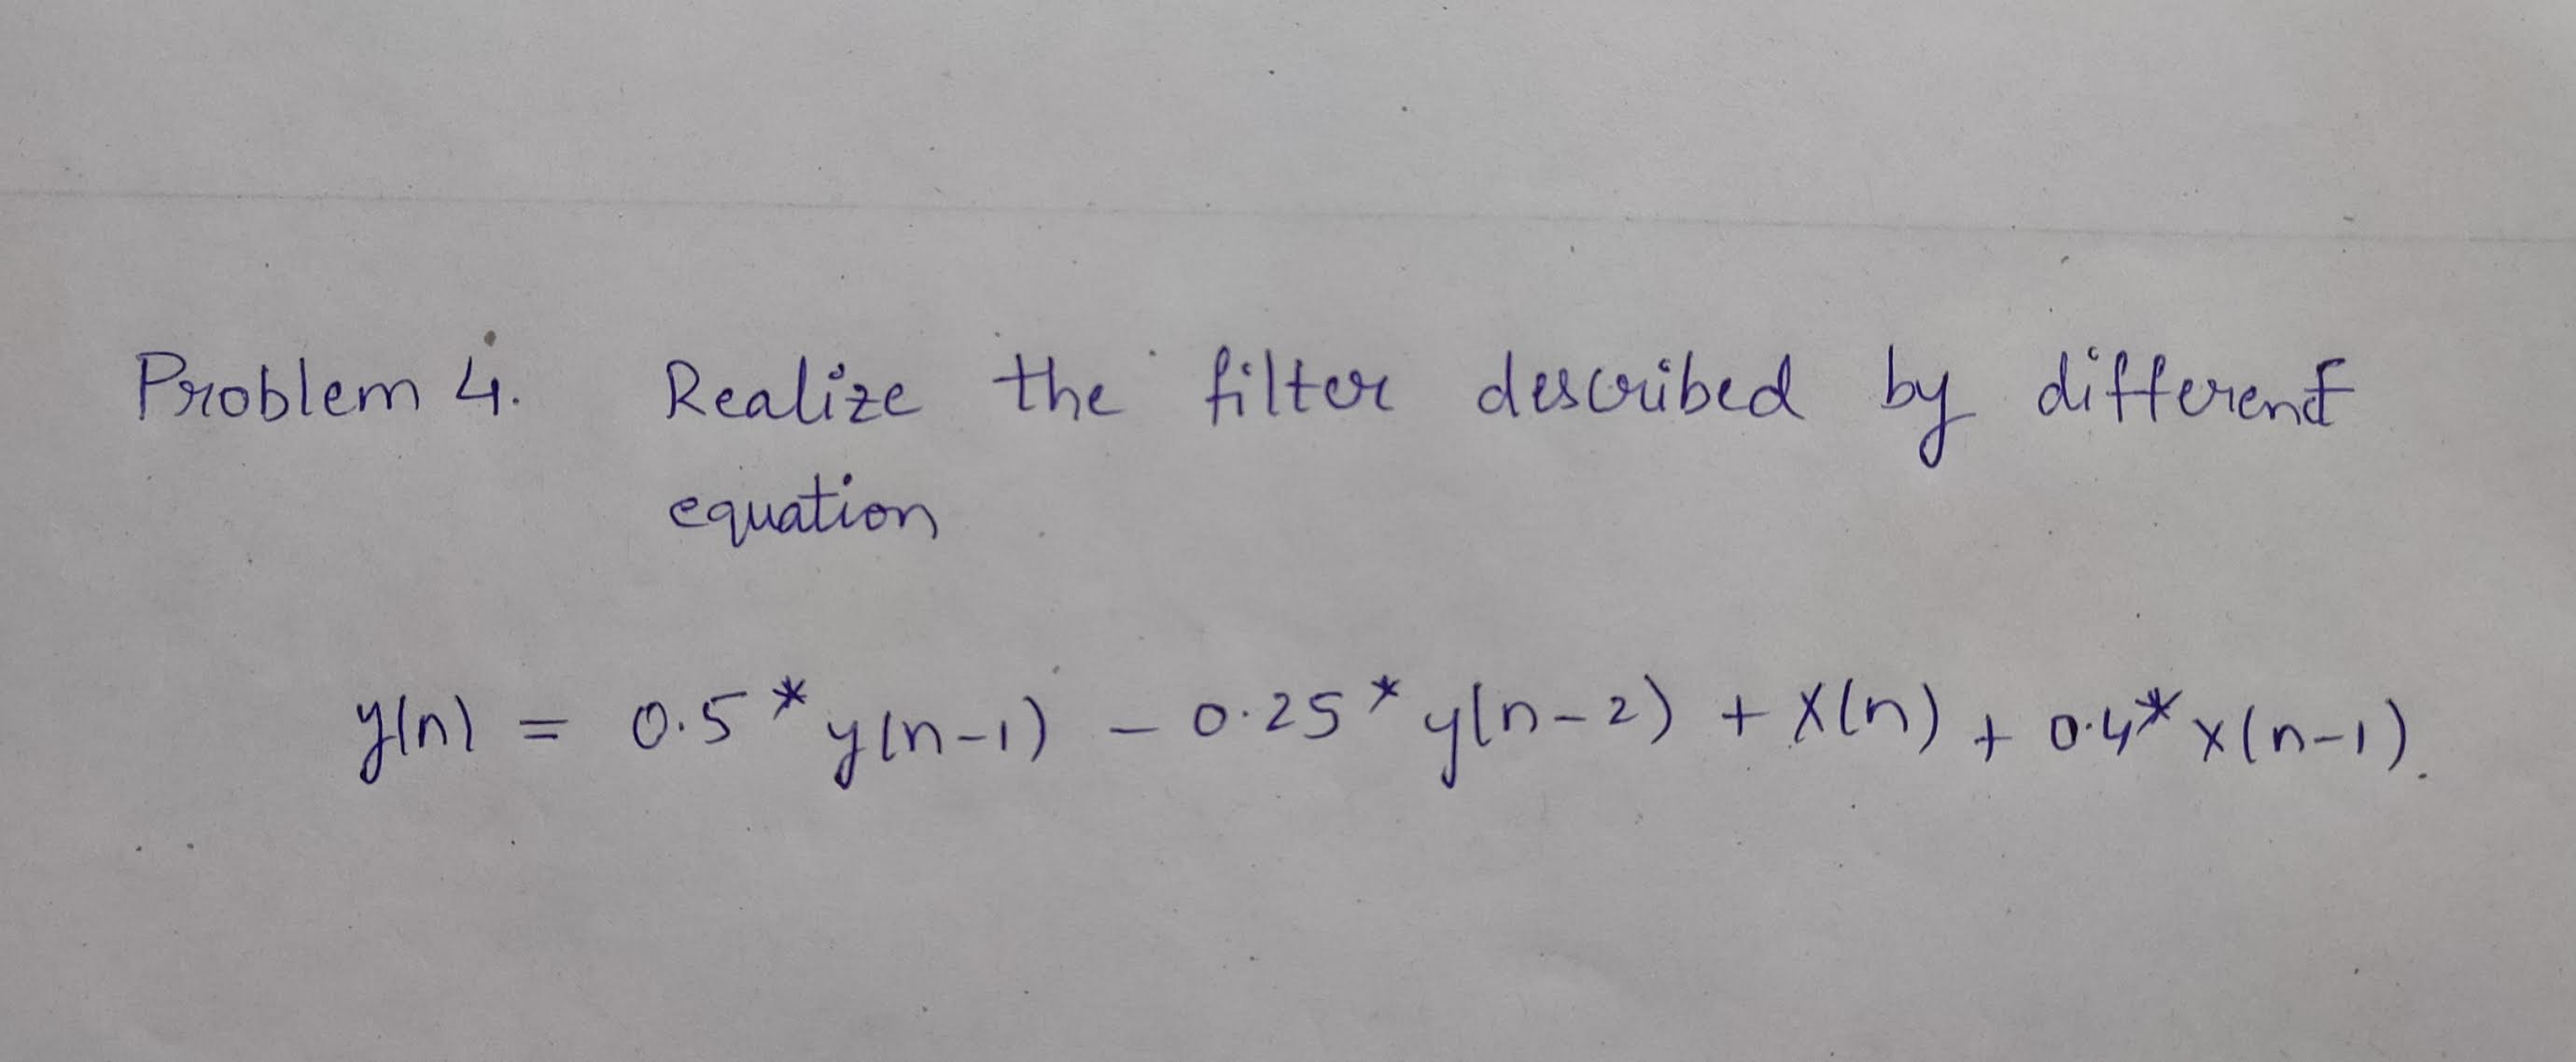 Problem 4. Realize the filter described by different
equation
y(n) = 0.5 * y(n-1) - 0.25 * y(n-2) + x(n) + 0.4* x(n-1).